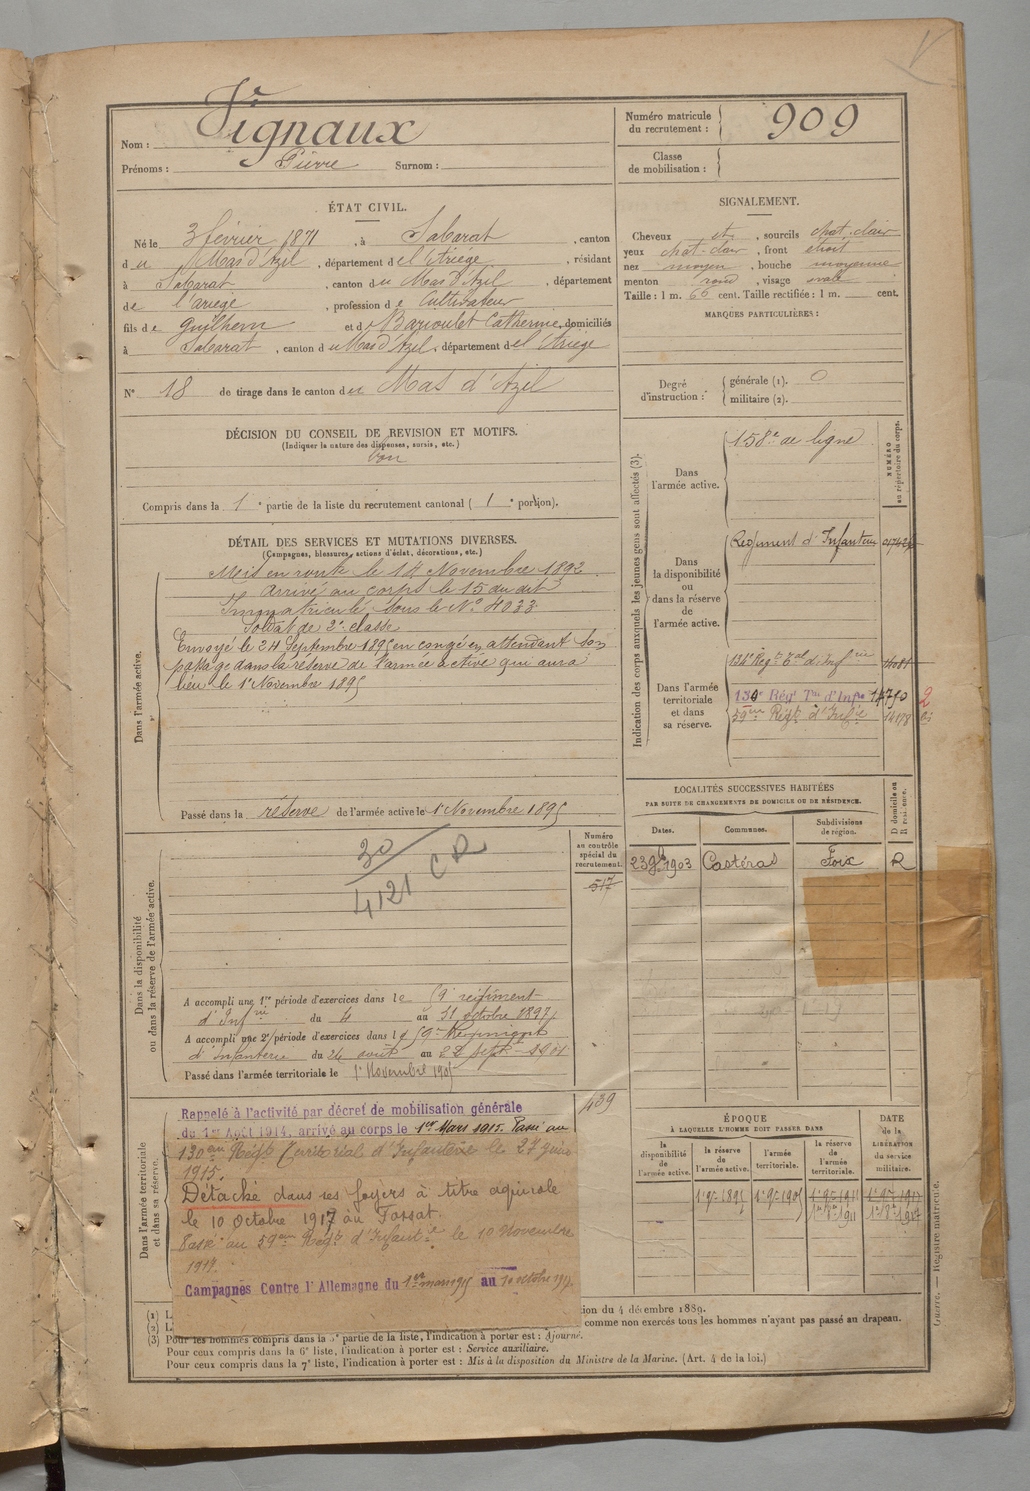 Nom : Vignaux
Prénoms : Pierre Surnom :
Numéro matricule
du recrutement : 909
Classe
de mobilisation :
ÉTAT CIVIL.
Né le 3 février 1871, à Sabarat, canton
du Mas d'Azil, département de l'Ariège, résidant
à Sabarat, canton du Mas d'Azil, département
de l'ariège, profession de Cultivateur
fils de Guilhem et de Barioulet Catherine, domiciliés
à Sabarat, canton du Mas d'Azil, département de l'Ariège
N° 18 de tirage dans le canton du Mas d'Azil
SIGNALEMENT.
Cheveux et, sourcils chat. clair
yeux chat. clair, front étroit
nez moyen, bouche moyenne
menton rond, visage ovale
Taille : 1 m. 66 cent. Taille rectifiée : 1 m. cent.
MARQUES PARTICULIÈRES :
Degré
d'instruction :
générale (1). 0
militaire (2).
DÉCISION DU CONSEIL DE REVISION ET MOTIFS.
(Indiquer la nature des dispenses, sursis, etc.)
bon
Compris dans la 1e partie de la liste du recrutement cantonal ( 1e portion).
DÉTAIL DES SERVICES ET MUTATIONS DIVERSES.
(Campagnes, blessures, actions d'éclat, décorations, etc.)
Dans l'armée active.
Mis en route le 14 Novembre 1892
arrivé au corps le 15 du dit
Immatriculé sous le N° 4033
Soldat de 2e classe
Envoyé le 24 Septembre 1895 en congé en attendant son
passage dans la réserve de l'armée active qui aura
lieu le 1e Novembre 1895
Passé dans la réserve de l'armée active le 1e Novembre 1895
Indication des corps auxquels les jeunes gens sont affectés (3).
NUMÉRO
au répertoire du corps.
Dans
l'armée active.
158e de ligne
Dans
la disponibilité
ou
dans la réserve
de
l'armée active.
Régiment d'Infanterie
Dans l'armée
territoriale
et dans
sa réserve.
134e Régt Tal d'Infrie 14081
130e Régt Tal d'Infie 14790 2
59ème Régt d'Infie 14178 bis
LOCALITÉS SUCCESSIVES HABITÉES
PAR SUITE DE CHANGEMENTS DE DOMICILE OU DE RÉSIDENCE.
Dates. Communes. Subdivisions
de région. D domicile ou
R résidence.
23 9bre 1903 Castéras Foix R
Dans la disponibilité
ou dans la réserve de l'armée active.
Numéro
au contrôle
spécial du
recrutement.
517
30
4121 CR
A accompli une 1re période d'exercices dans le 59e régiment
d'Infrie du 4 au 31 octobre 1897
A accompli une 2e période d'exercices dans le 59e Régiment
d'Infanterie du 26 août au 22 Sept. 1901
Passé dans l'armée territoriale le 1e Novembre 1905
439
Dans l'armée territoriale
et dans sa réserve.
Rappelé à l'activité par décret de mobilisation générale
du 1er Août 1914, arrivé au corps le 1er Mars 1915. Passé au
130ème Régt territorial d'Infanterie le 27 juin
1915.
Détaché dans ses foyers à titre agricole
le 10 Octobre 1917 au Fossat.
Passé au 59ème Régt d'Infantie le 10 Novembre
1917.
Campagnes Contre l'Allemagne du 1er mars 1915 au 10 octobre 1917
ÉPOQUE
À LAQUELLE L'HOMME DOIT PASSER DANS
la
disponibilité
de
l'armée active.
la réserve
de
l'armée active.
l'armée
territoriale.
la réserve
de
l'armée
territoriale.
DATE
de la
LIBÉRATION
du service
militaire.
1e 9bre 1895 1e 9bre 1905 1e 9bre 1911 1e 9bre 1917
(1) L
(2) L
tion du 4 décembre 1889.
comme non exercés tous les hommes n'ayant pas passé au drapeau.
(3) Pour les hommes compris dans la 5e partie de la liste, l'indication à porter est : Ajourné.
Pour ceux compris dans la 6e liste, l'indication à porter est : Service auxiliaire.
Pour ceux compris dans la 7e liste, l'indication à porter est : Mis à la disposition du Ministre de la Marine. (Art. 4 de la loi.)
Guerre. — Registre matricule.